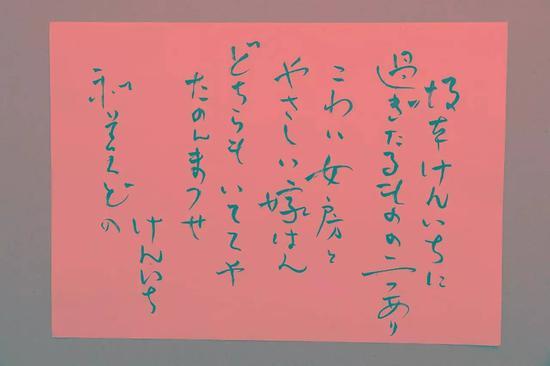 坂本けんいちに
過ぎたるものの二つあり
こわい女房と
やさしい嫁はん
どちらもいててや
たのんまっせ
けんいち
和美どの